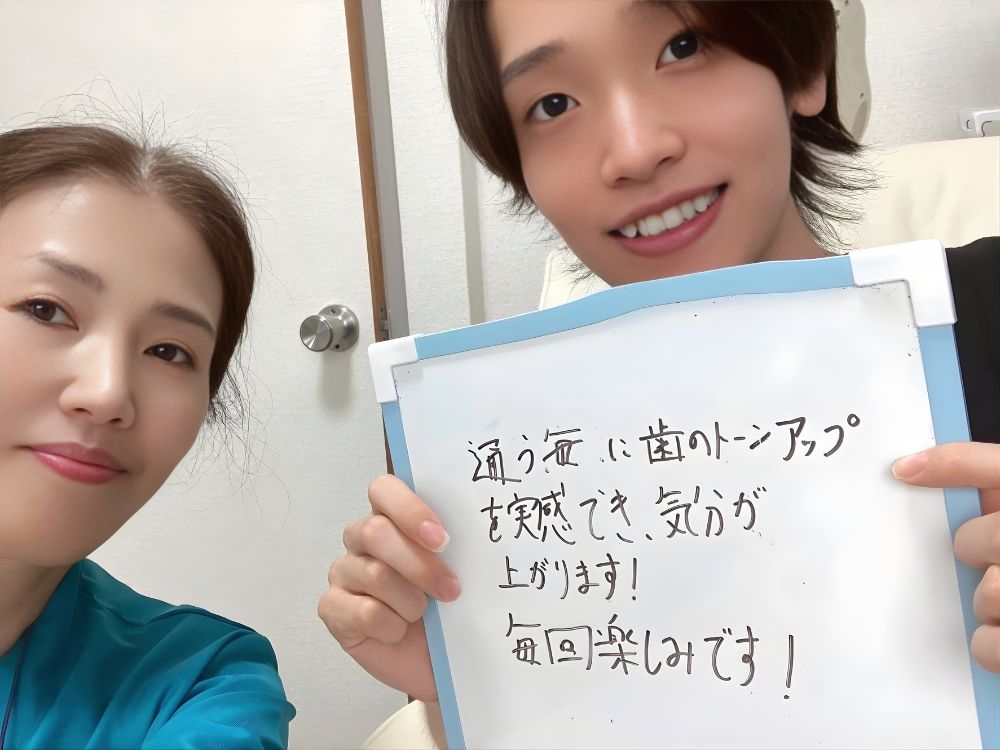 通う毎に歯のトーンアップ
を実感でき、気分が
上がります!
毎回楽しみです!